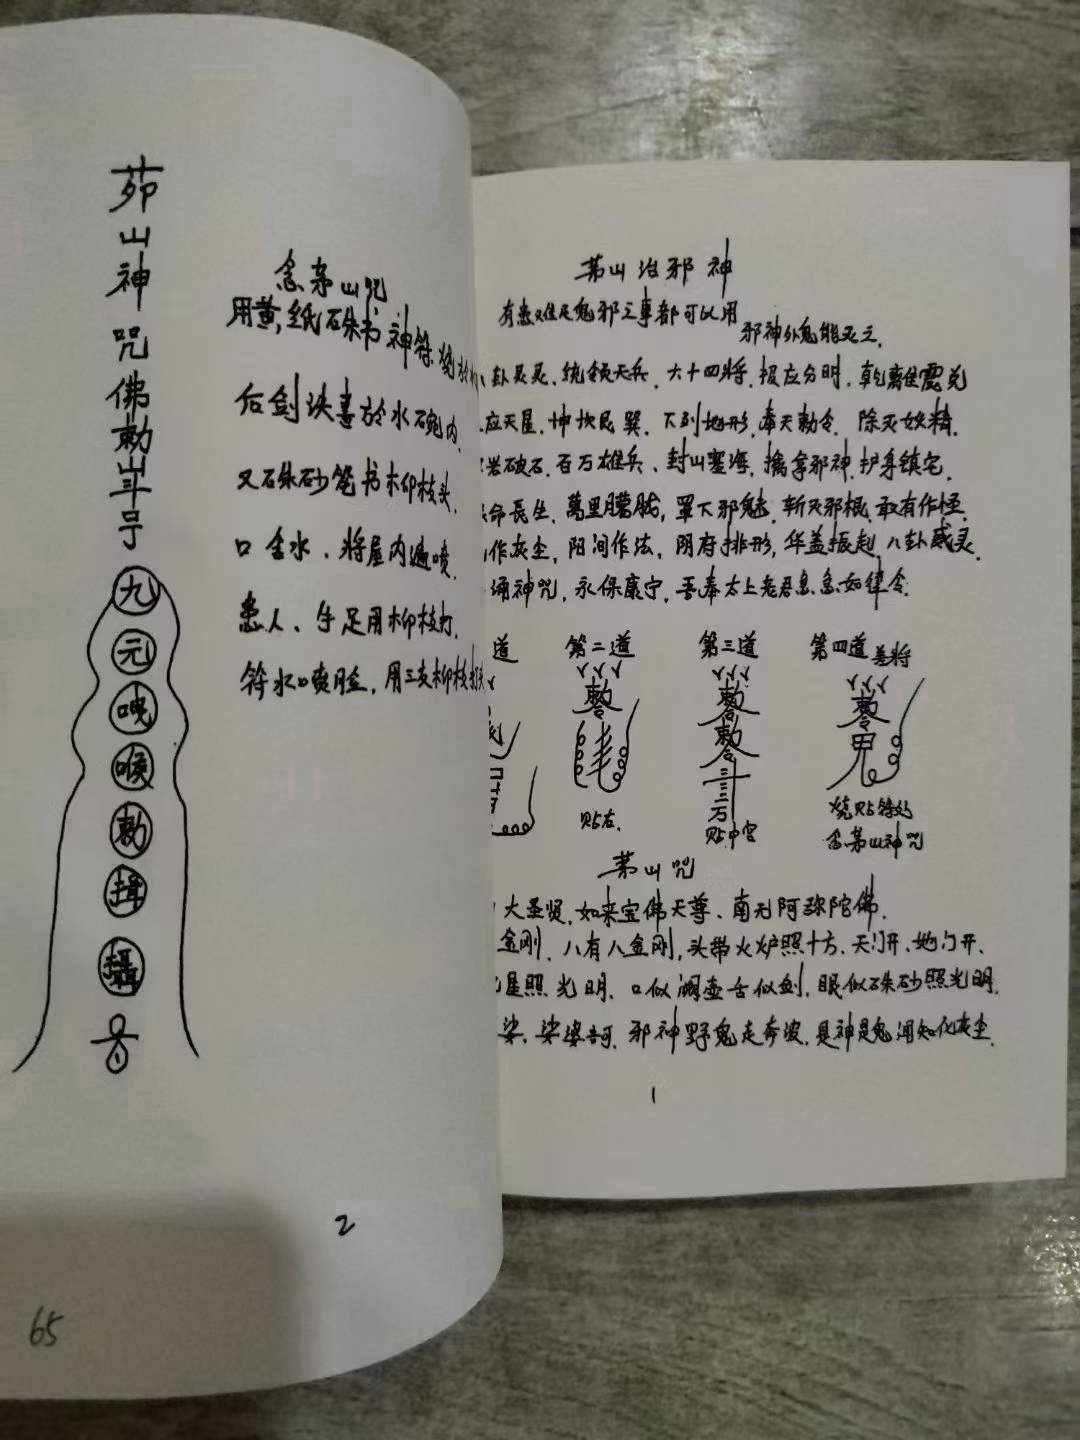 茆山神咒佛勅
斗
九
元
勅
揖
攝
念茅山咒
用黄纸硃书神符
后剑诀书於水碗内
又硃砂笔书柳枝头
口含水、将屋内遍喷
患人、手足用柳枝打
符水口喷脸，用三支柳枝
2
65
茅山治邪神
有患难是鬼邪之事都可以用
邪神外鬼能灭之
卦灵灵、统领天兵、六十四将、报应分明、乾離震兑
应天星、坤坎艮巽、下列地形、奉天勅令、除灭妖精
岩破石、百万雄兵、封山塞海、擒拿邪神、护身镇宅
命長生、萬里朦胧、罩下邪魅、斩灭邪根、敢有作怪
作灰尘、阳间作法、阴府排形、华盖振起、八卦威灵
诵神咒、永保康宁、吾奉太上老君急急如律令
道 第二道 第三道 第四道 差将
勅令 勅令 勅令
勅令
鬼
贴左 贴中宫 烧贴符处
念茅山神咒
茅山咒
大圣贤、如来宝佛天尊、南无阿弥陀佛
金刚、八有八金刚，头带火炉照十方、天门开、地门开、
星照光明、口似湖壶舌似剑，眼似硃砂照光明
娑、娑婆诃、邪神野鬼走奔波、是神是鬼闻知化灰尘
1